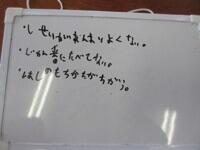 ・しせいがあんまりよくない。
・じゅん番にたべてない。
・はしのもちかたがちがう。